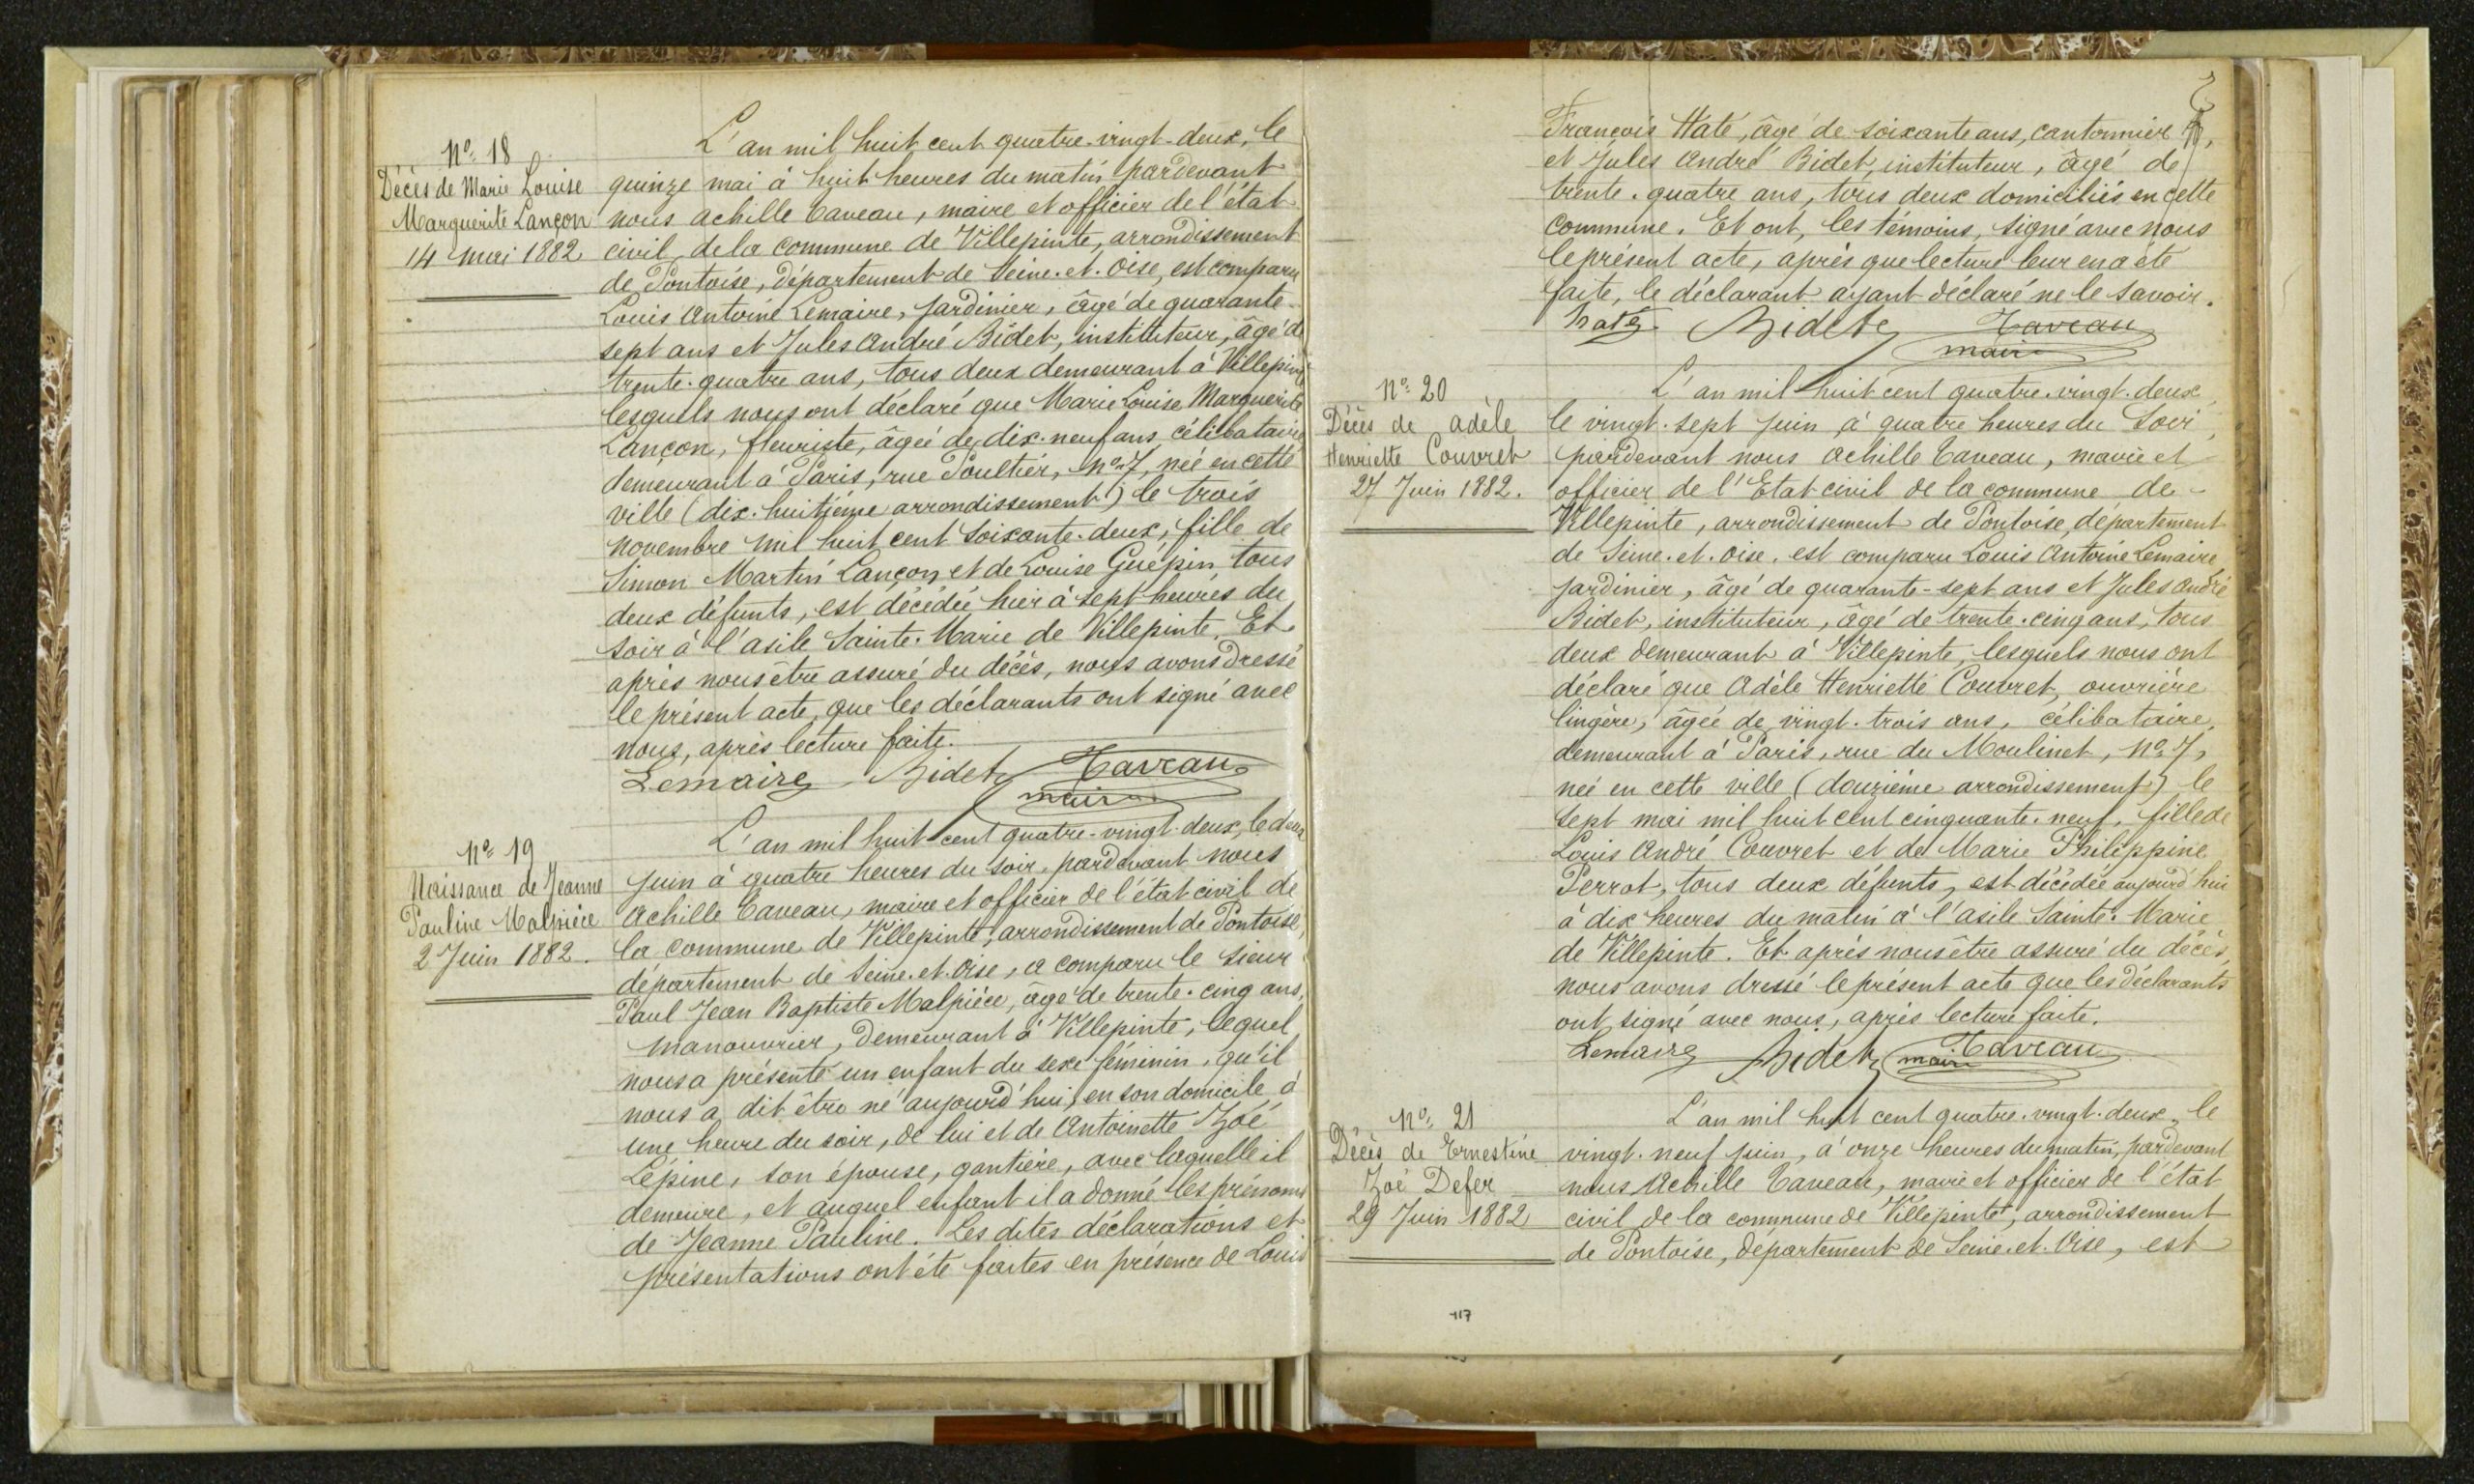 Nº 18
Décès de Marie Louise
Marguerite Lançon
14 mai 1882
L'an mil huit cent quatre-vingt-deux, le
quinze mai à huit heures du matin pardevant
nous achille Taveau, maire et officier de l'état
civil de la commune de Villepinte, arrondissement
de Pontoise, département de Seine-et-Oise, est comparu
Louis Antoine Lemaire, jardinier, âgé de quarante-
sept ans et Jules André Bidet, instituteur, âgé de
trente-quatre ans, tous deux demeurant à Villepinte
lesquels nous ont déclaré que Marie Louise Marguerite
Lançon, fleuriste, âgée de dix-neuf ans, célibataire
demeurant à Paris, rue Poultier, Nº 7, née en cette
ville (dix-huitième arrondissement) le trois
novembre mil huit cent soixante-deux, fille de
Simon Martin Lançon et de Louise Guépin tous
deux défunts, est décédée hier à sept heures du
soir à l'asile Sainte-Marie de Villepinte. Et
après nous être assuré du décès, nous avons dressé
le présent acte, que les déclarants ont signé avec
nous, après lecture faite.
Lemaire Bidet Taveau
maire
Nº 19
Naissance de Jeanne
Pauline Malpièce
2 Juin 1882.
L'an mil huit cent quatre-vingt-deux, le deux
juin à quatre heures du soir, pardevant nous
Achille Taveau, maire et officier de l'état civil de
la commune de Villepinte, arrondissement de Pontoise,
département de Seine-et-Oise, a comparu le sieur
Paul Jean Baptiste Malpièce, âgé de trente-cinq ans,
manouvrier, demeurant à Villepinte, lequel
nous a présenté un enfant du sexe féminin, qu'il
nous a dit être né aujourd'hui, en son domicile, à
une heure du soir, de lui et de Antoinette Zoé
Lépine, son épouse, gantière, avec laquelle il
demeure, et auquel enfant il a donné les prénoms
de Jeanne Pauline. Les dites déclarations et
présentations ont été faites en présence de Louis
François Haté, âgé de soixante ans, cantonnier,
et Jules André Bidet, instituteur, âgé de
trente-quatre ans, tous deux domiciliés en cette
commune. Et ont, les témoins, signé avec nous
le présent acte, après que lecture leur en a été
faite, le déclarant ayant déclaré ne le savoir.
haté Bidet Taveau
maire
Nº 20
Décès de Adèle
Henriette Couvret
27 Juin 1882.
L'an mil huit cent quatre-vingt-deux,
le vingt-sept juin, à quatre heures du Soir,
pardevant nous Achille Taveau, maire et
officier de l'Etat civil de la commune de
Villepinte, arrondissement de Pontoise, département
de Seine-et-Oise, est comparu Louis Antoine Lemaire
jardinier, âgé de quarante-sept ans et Jules André
Bidet, instituteur, âgé de trente-cinq ans, tous
deux demeurant à Villepinte, lesquels nous ont
déclaré que Adèle Henriette Couvret, ouvrière
lingère, âgée de vingt-trois ans, célibataire,
demeurant à Paris, rue du Moulinet, Nº 7,
née en cette ville (douzième arrondissement) le
sept mai mil huit cent cinquante-neuf, fille de
Louis André Couvret et de Marie Philippine
Perrot, tous deux défunts, est décédée aujourd'hui
à dix heures du matin à l'asile Sainte-Marie
de Villepinte. Et après nous être assuré du décès,
nous avons dressé le présent acte que les déclarants
ont signé avec nous, après lecture faite.
Lemaire Bidet Taveau
maire
Nº 21
Décès de Ernestine
Zoé Defer
29 Juin 1882
L'an mil huit cent quatre-vingt-deux, le
vingt-neuf juin, à onze heures du matin, pardevant
nous Achille Taveau, maire et officier de l'état
civil de la commune de Villepinte, arrondissement
de Pontoise, département de Seine-et-Oise, est
117